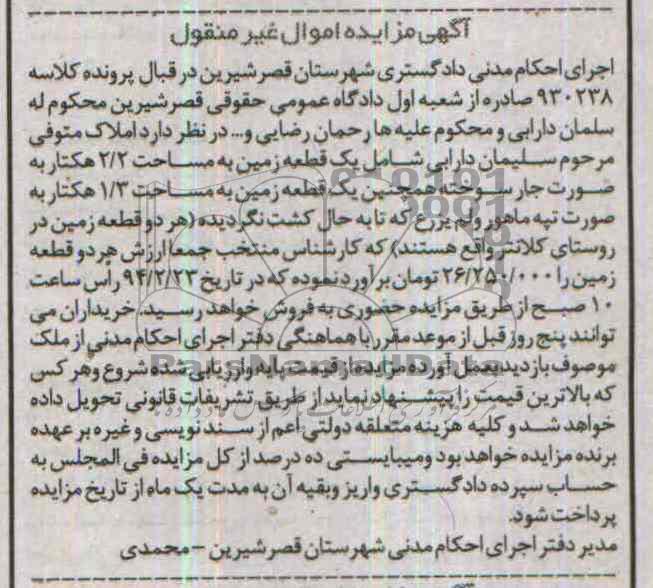 آگهی مزایده اموال غیر منقول
اجرای احکام مدنی دادگستری شهرستان قصرشیرین در قبال پرونده کلاسه
۹۳۰۲۳۸ صادره از شعبه اول دادگاه عمومی حقوقی قصرشیرین محکوم له
سلمان دارابی و محکوم علیه ها رحمان رضایی و... در نظر دارد املاک متوفی
مرحوم سلیمان دارابی شامل یک قطعه زمین به مساحت ۲/۲ هکتار به
صورت جار سوخته همچنین یک قطعه زمین به مساحت ۱/۳ هکتار به
صورت تپه ماهور ولم یزرع که تا به حال کشت نگردیده (هر دو قطعه زمین در
روستای کلانتر واقع هستند) که کارشناس منتخب جمعا ارزش هر دو قطعه
زمین را ۲۶/۲۵۰/۰۰۰ تومان برآورد نموده که در تاریخ ۹۴/۲/۲۳ رأس ساعت
۱۰ صبح از طریق مزایده حضوری به فروش خواهد رسید. خریداران می
توانند پنج روز قبل از موعد مقرر با هماهنگی دفتر اجرای احکام مدنی از ملک
موصوف بازدید بعمل آورده مزایده از قیمت پایه وارزیابی شده شروع وهر کس
که بالاترین قیمت را پیشنهاد نماید از طریق تشریفات قانونی تحویل داده
خواهد شد و کلیه هزینه متعلقه دولتی اعم از سند نویسی و غیره بر عهده
برنده مزایده خواهد بود ومیبایستی ده درصد از کل مزایده فی المجلس به
حساب سپرده دادگستری واریز وبقیه آن به مدت یک ماه از تاریخ مزایده
پرداخت شود.
مدیر دفتر اجرای احکام مدنی شهرستان قصرشیرین - محمدی
ParsNamadData